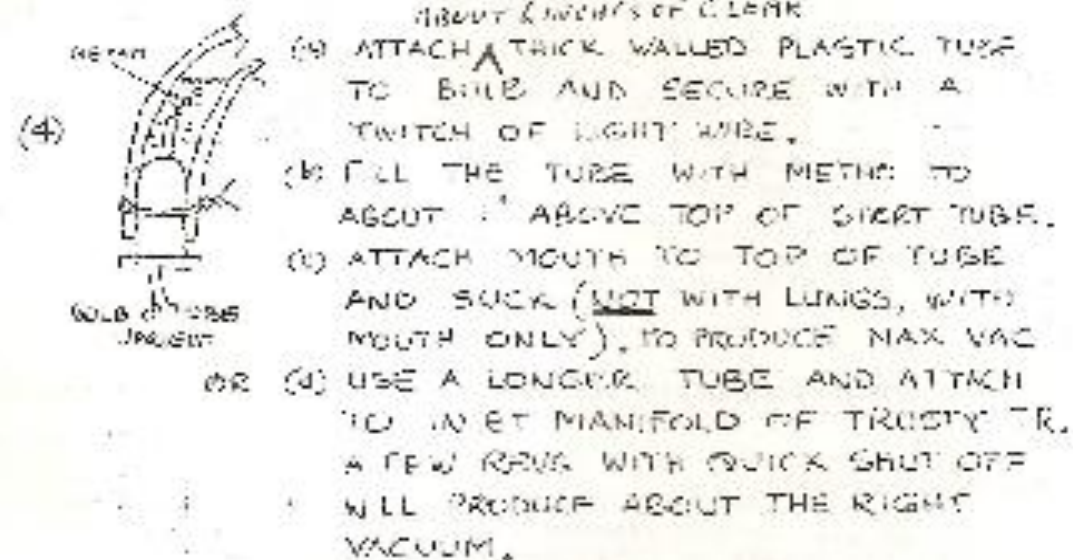 ABOUT 6 INCHES OF CLEAR
(a) ATTACH THICK WALLED PLASTIC TUBE
TO BULB AND SECURE WITH A
(4)
TWITCH OF LIGHT WIRE.
(b) FILL THE TUBE WITH METHO TO
ABOUT 1" ABOVE TOP OF SHORT TUBE.
(c) ATTACH MOUTH TO TOP OF TUBE
AND SUCK (NOT WITH LUNGS, WITH
BULB & TUBE
MOUTH ONLY), TO PRODUCE MAX VAC
UPRIGHT
OR (d) USE A LONGER TUBE AND ATTACH
TO INLET MANIFOLD OF TRUSTY TR.
A FEW REVS WITH QUICK SHUT OFF
WILL PRODUCE ABOUT THE RIGHT
VACUUM.